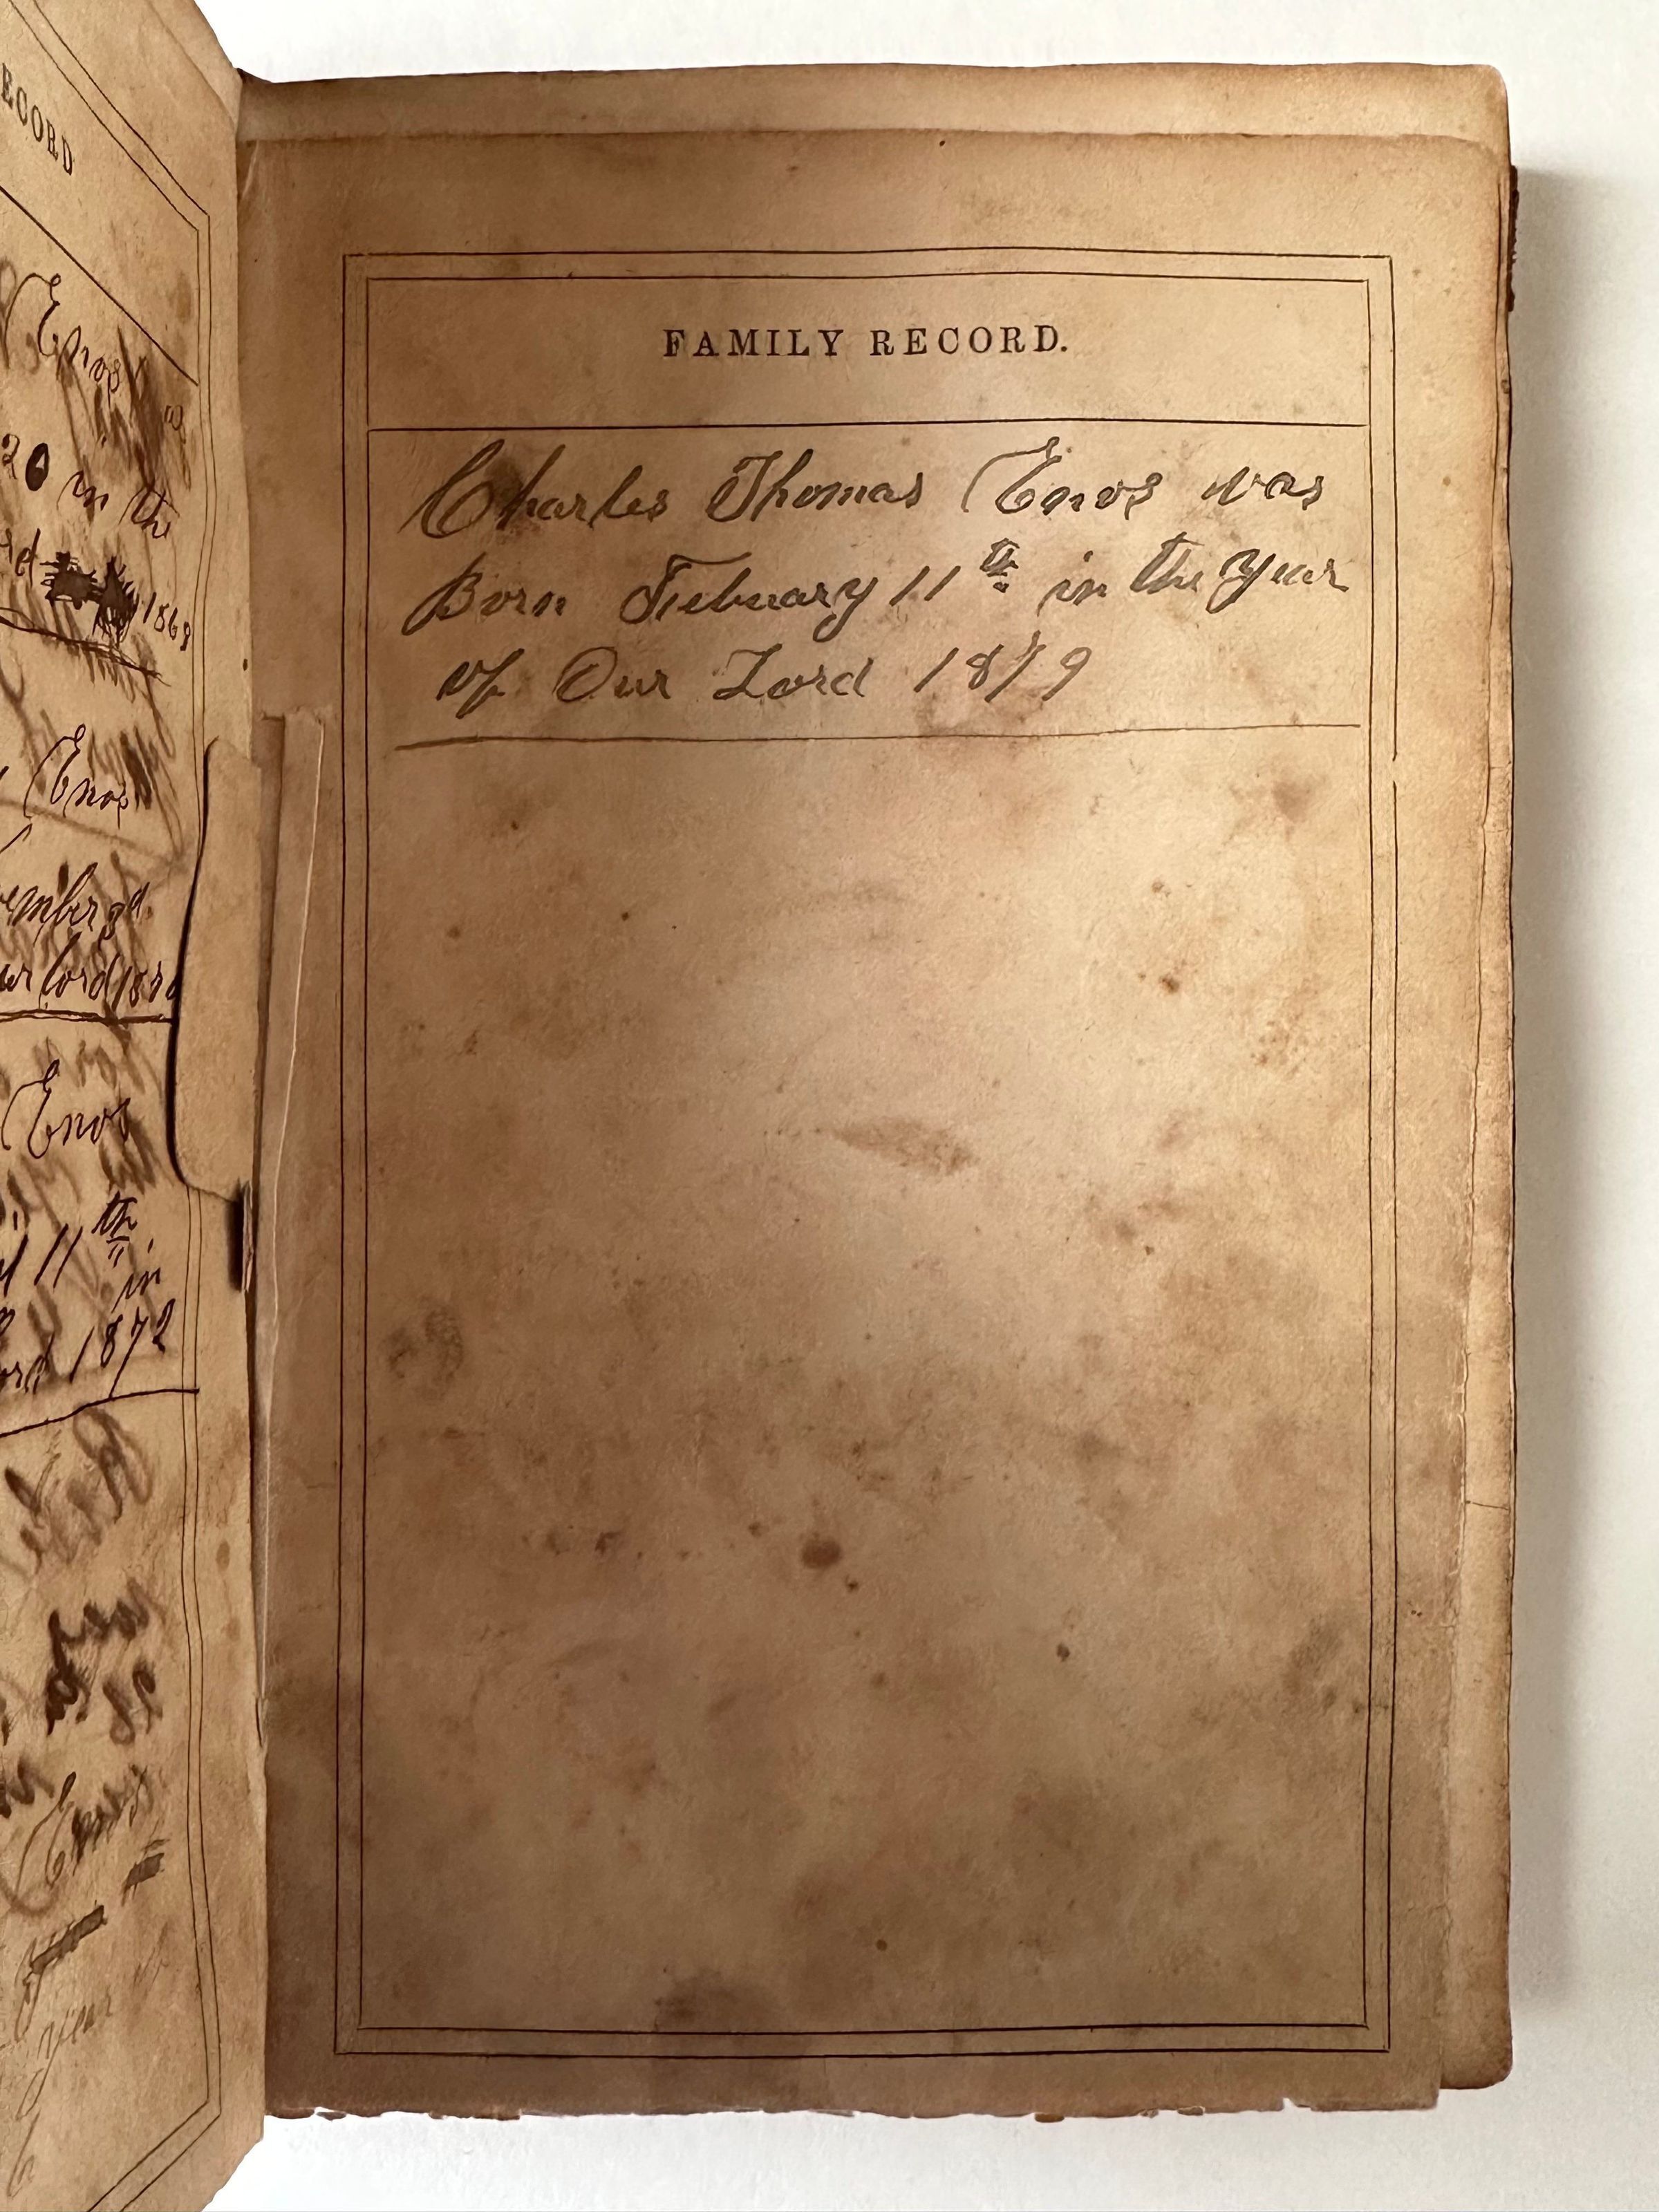 ECORD
Enos
20 in the
rd 1869
Enos
ember 3d
ur Lord
Enos
11th
in
ord 1872
year
FAMILY RECORD.
Charles Thomas Enos was
Born Febuary 11th in the Year
of Our Lord 1879